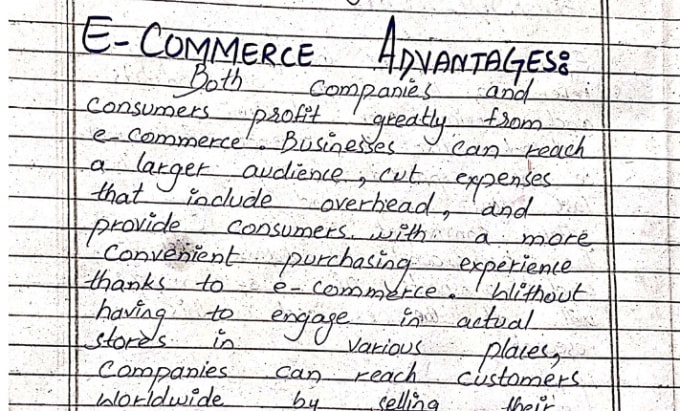 E-COMMERCE ADVANTAGES:
Both companies and
consumers profit greatly from
e-commerce. Businesses can reach
a larger audience, cut expenses
that include overhead, and
provide consumers with a more
convenient purchasing experience
thanks to e-commerce. Without
having to engage in actual
stores in various places,
companies can reach customers
worldwide by selling their